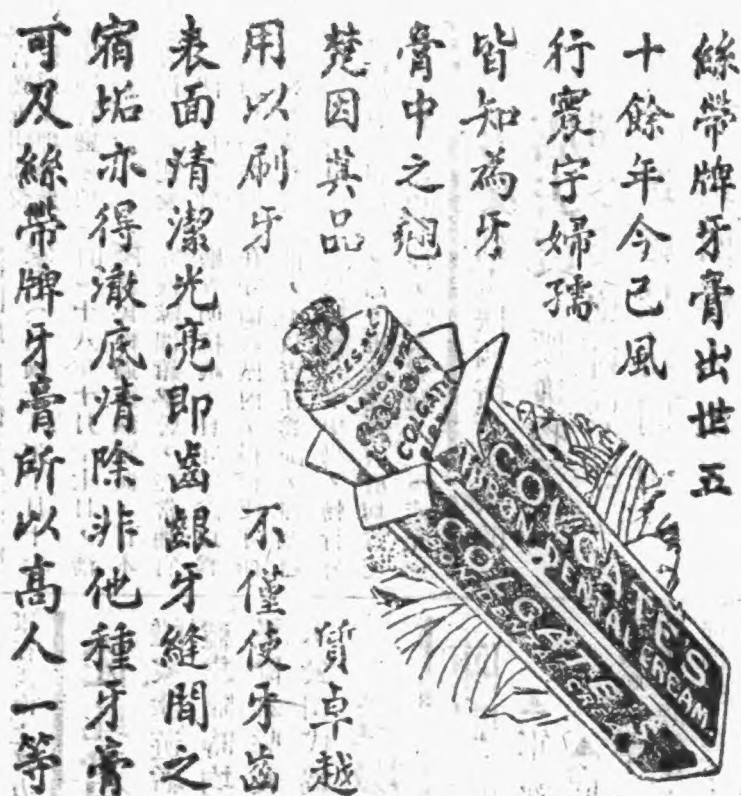 絲帶牌牙膏出世五
十餘年今已風
行寰宇婦孺
皆知為牙
膏中之翹
楚因其品
質卓越
用以刷牙
不僅使牙齒
表面清潔光亮即齒齦牙縫間之
宿垢亦得澈底清除非他種牙膏
可及絲帶牌牙膏所以高人一等
COLGATE'S
RIBBON DENTAL CREAM
COLGATE
DENTAL CREAM
COLGATE